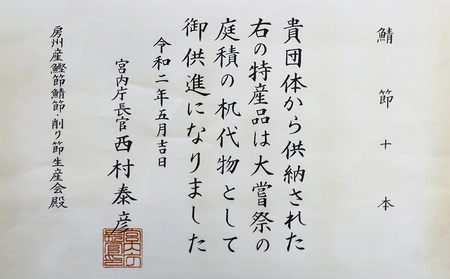 鯖節十本
貴団体から供納された
右の特産品は大嘗祭の
庭積の机代物として
御供進になりました
令和二年五月吉日
宮内庁長官 西村泰彦
房州産鰹節鯖節・削り節生産会殿